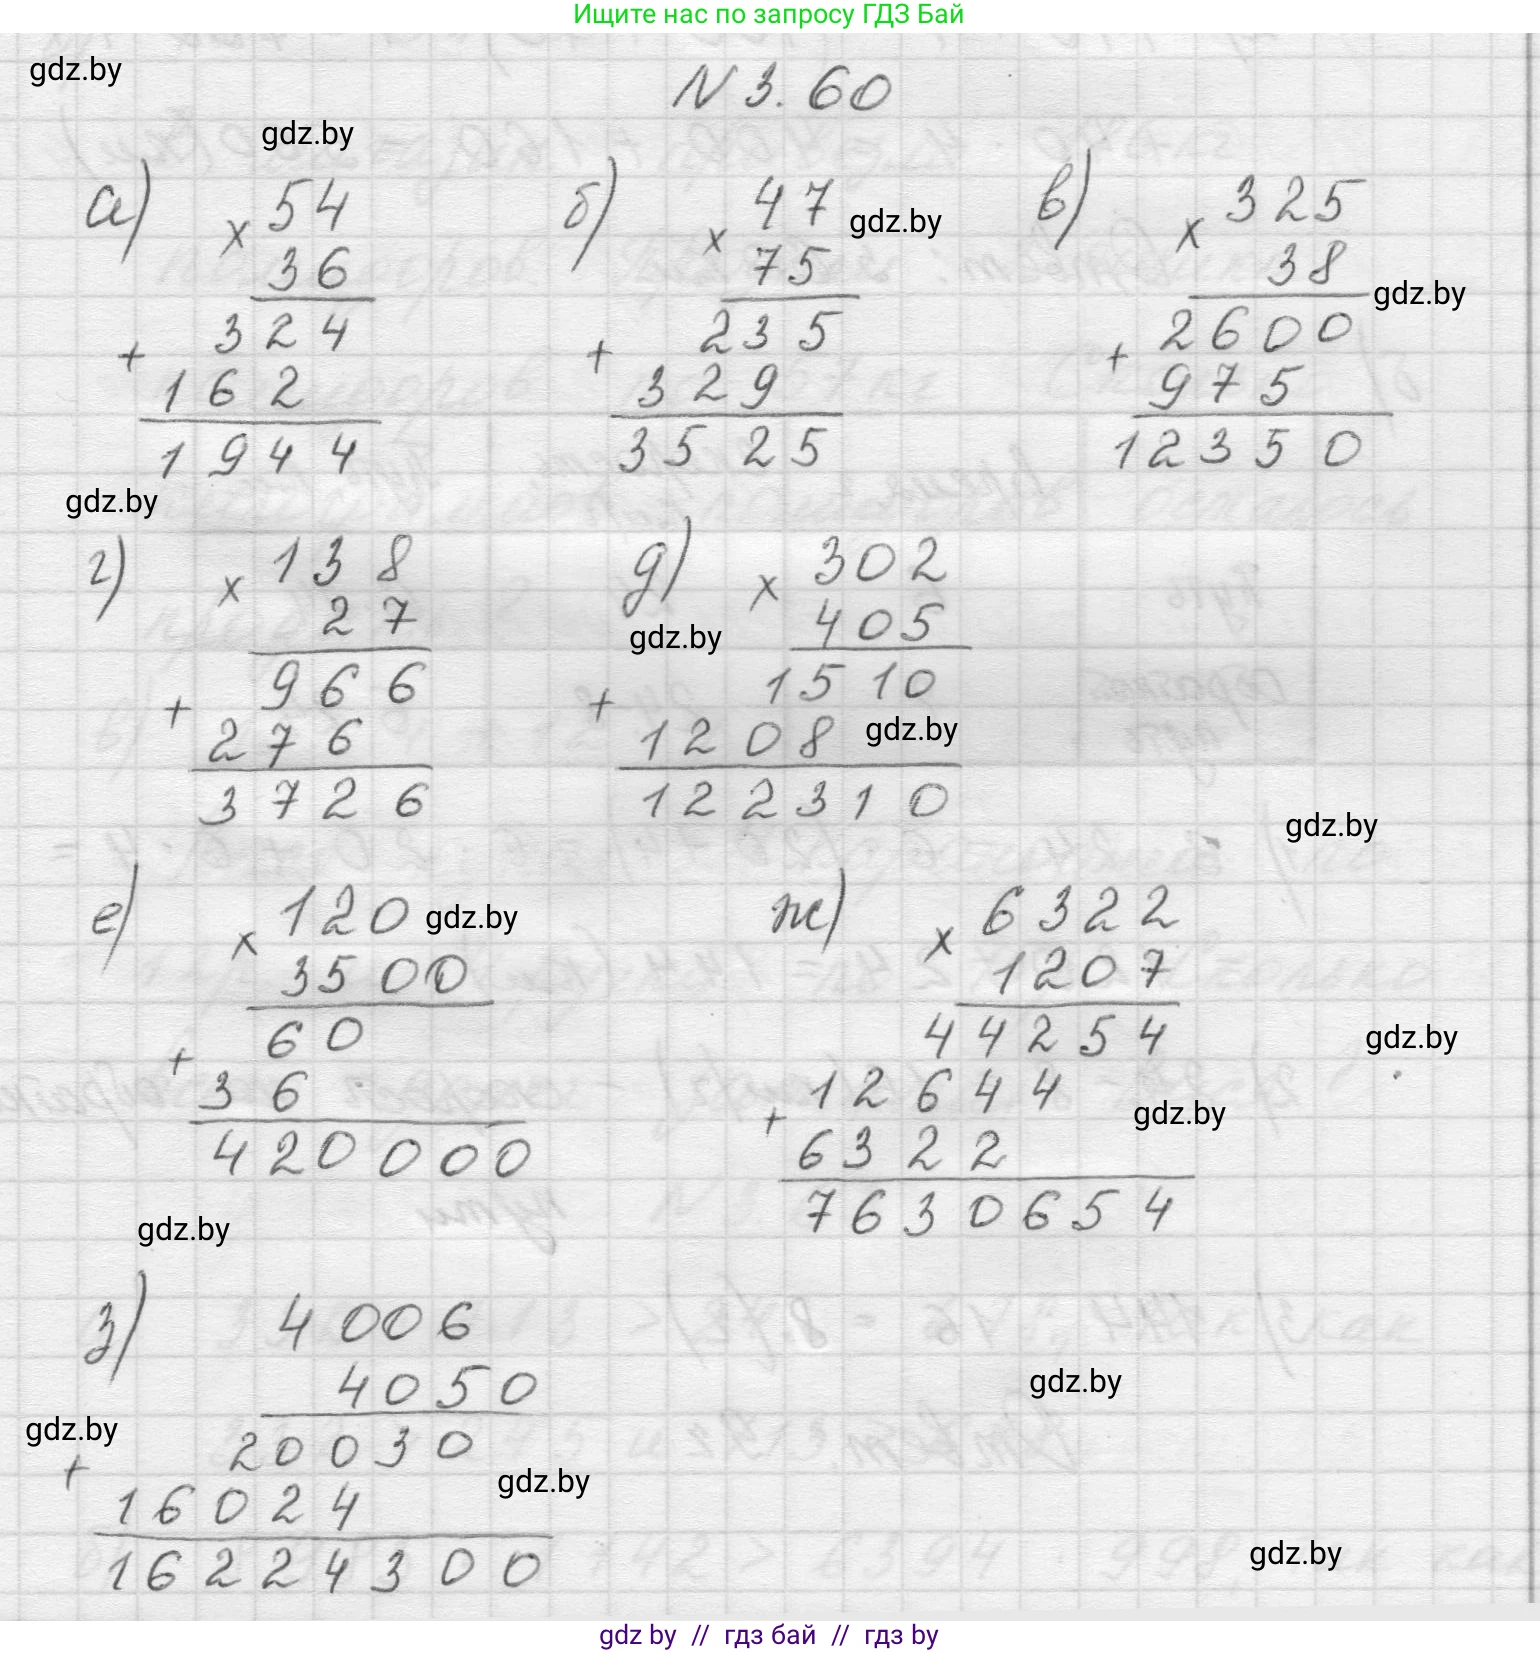 Ищите нас по запросу ГДЗ Бай
gdz.by
N 3.60
gdz.by
а) × 54
36
+ 324
162
1944
б) × 47
gdz.by
75
+ 235
329
3525
в) × 325
38
gdz.by
+ 2600
975
12350
gdz.by
г) × 138
27
+ 966
276
3726
д) × 302
405
gdz.by
+ 1510
1208
gdz.by
122310
gdz.by
е) × 120
gdz.by
3500
+ 60
36
420000
ж) × 6322
1207
44254
gdz.by
+ 12644
gdz.by
6322
7630654
gdz.by
з) 4006
4050
gdz.by
gdz.by
+ 20030
gdz.by
16024
16224300
gdz.by
gdz by // гдз бай // гдз by